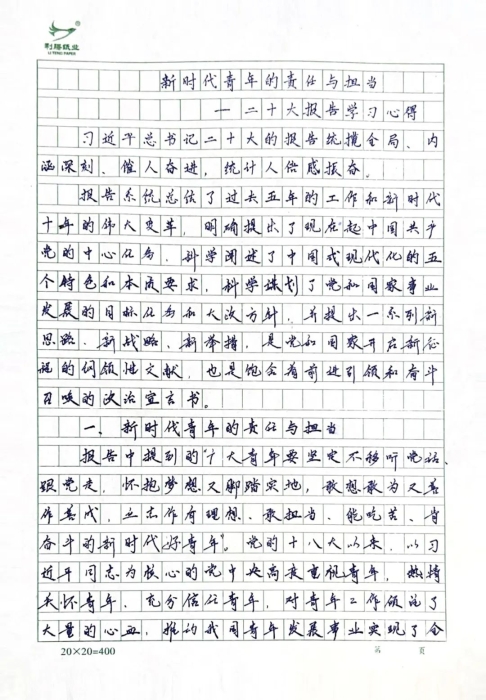 利腾纸业
LI TENG PAPER
新时代青年的责任与担当
—二十大报告学习心得
习近平总书记二十大的报告统揽全局、内
涵深刻、催人奋进,统计人倍感振奋。
报告系统总结了过去五年的工作和新时代
十年的伟大变革,明确提出了现在起中国共产
党的中心任务,科学阐述了中国式现代化的五
个特色和本质要求,科学谋划了党和国家事业
发展的目标任务和大政方针,并提出一系列新
思路、新战略、新举措,是党和国家开启新征
程的纲领性文献,也是饱含着前进引领和奋斗
召唤的政治宣言书。
一、新时代青年的责任与担当
报告中提到的"广大青年要坚定不移听党话、
跟党走,怀抱梦想又脚踏实地,敢想敢为又善
作善成,立志作有理想、敢担当、能吃苦、肯
奋斗的新时代好青年"。党的十八大以来,以习
近平同志为核心的党中央高度重视青年,热情
关怀青年,充分信任青年,对青年工作倾注了
大量的心血,推动我国青年发展事业实现了全
20×20=400
第 页